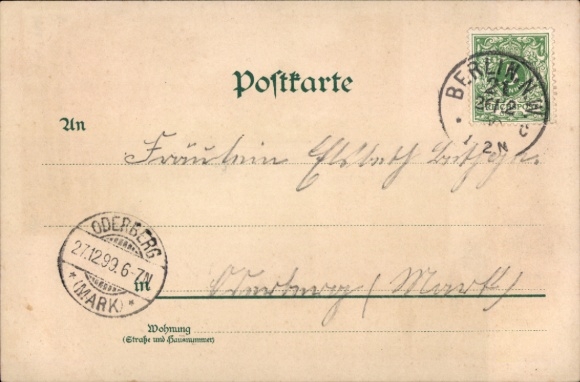 Postkarte
BERLIN, N
An
Fräulein Elsbeth
ODERBERG
27.12.99.6-7N
* (MARK) *
in Oderberg (Mark)
Wohnung
(Straße und Hausnummer)